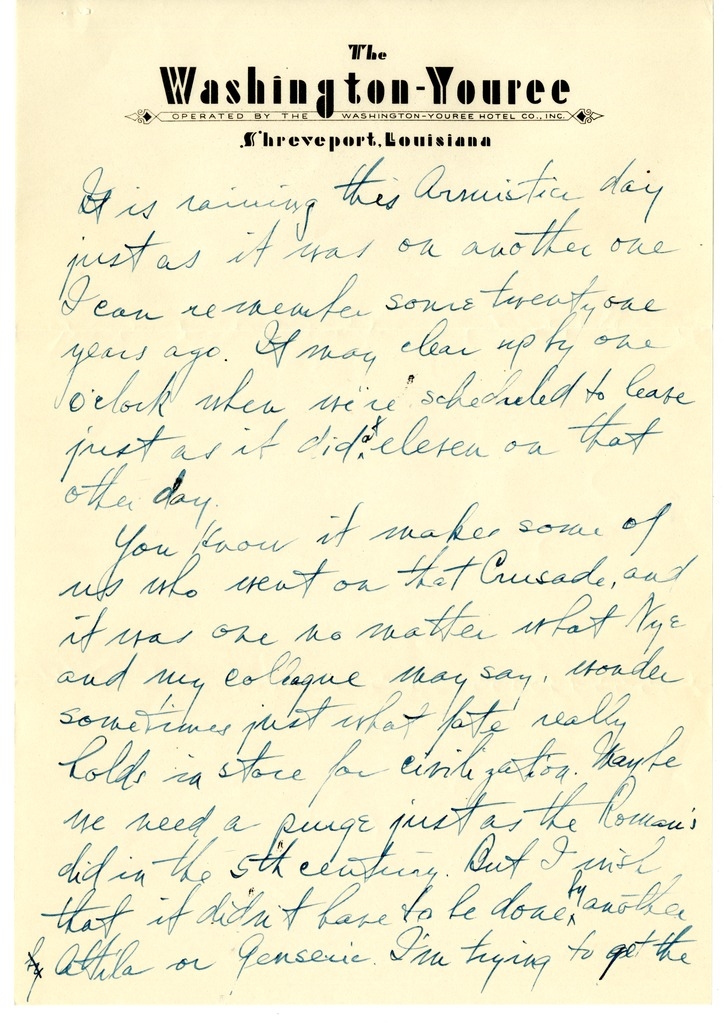 The
Washington-Youree
OPERATED BY THE WASHINGTON-YOUREE HOTEL CO., INC.
Shreveport, Louisiana
It is raining this Armistice day
just as it was on another one
I can remember some twenty one
years ago. It may clear up by one
o'clock when we're scheduled to leave
just as it did at eleven on that
other day.
You know it makes some of
us who went on that Crusade, and
it was one no matter what Nye
and my colleague may say, wonder
sometimes just what fate really
holds in store for civilization. Maybe
we need a purge just as the Roman's
did in the 5th century. But I wish
that it didn't have to be done by another
Attila or Genseric. I'm trying to get the